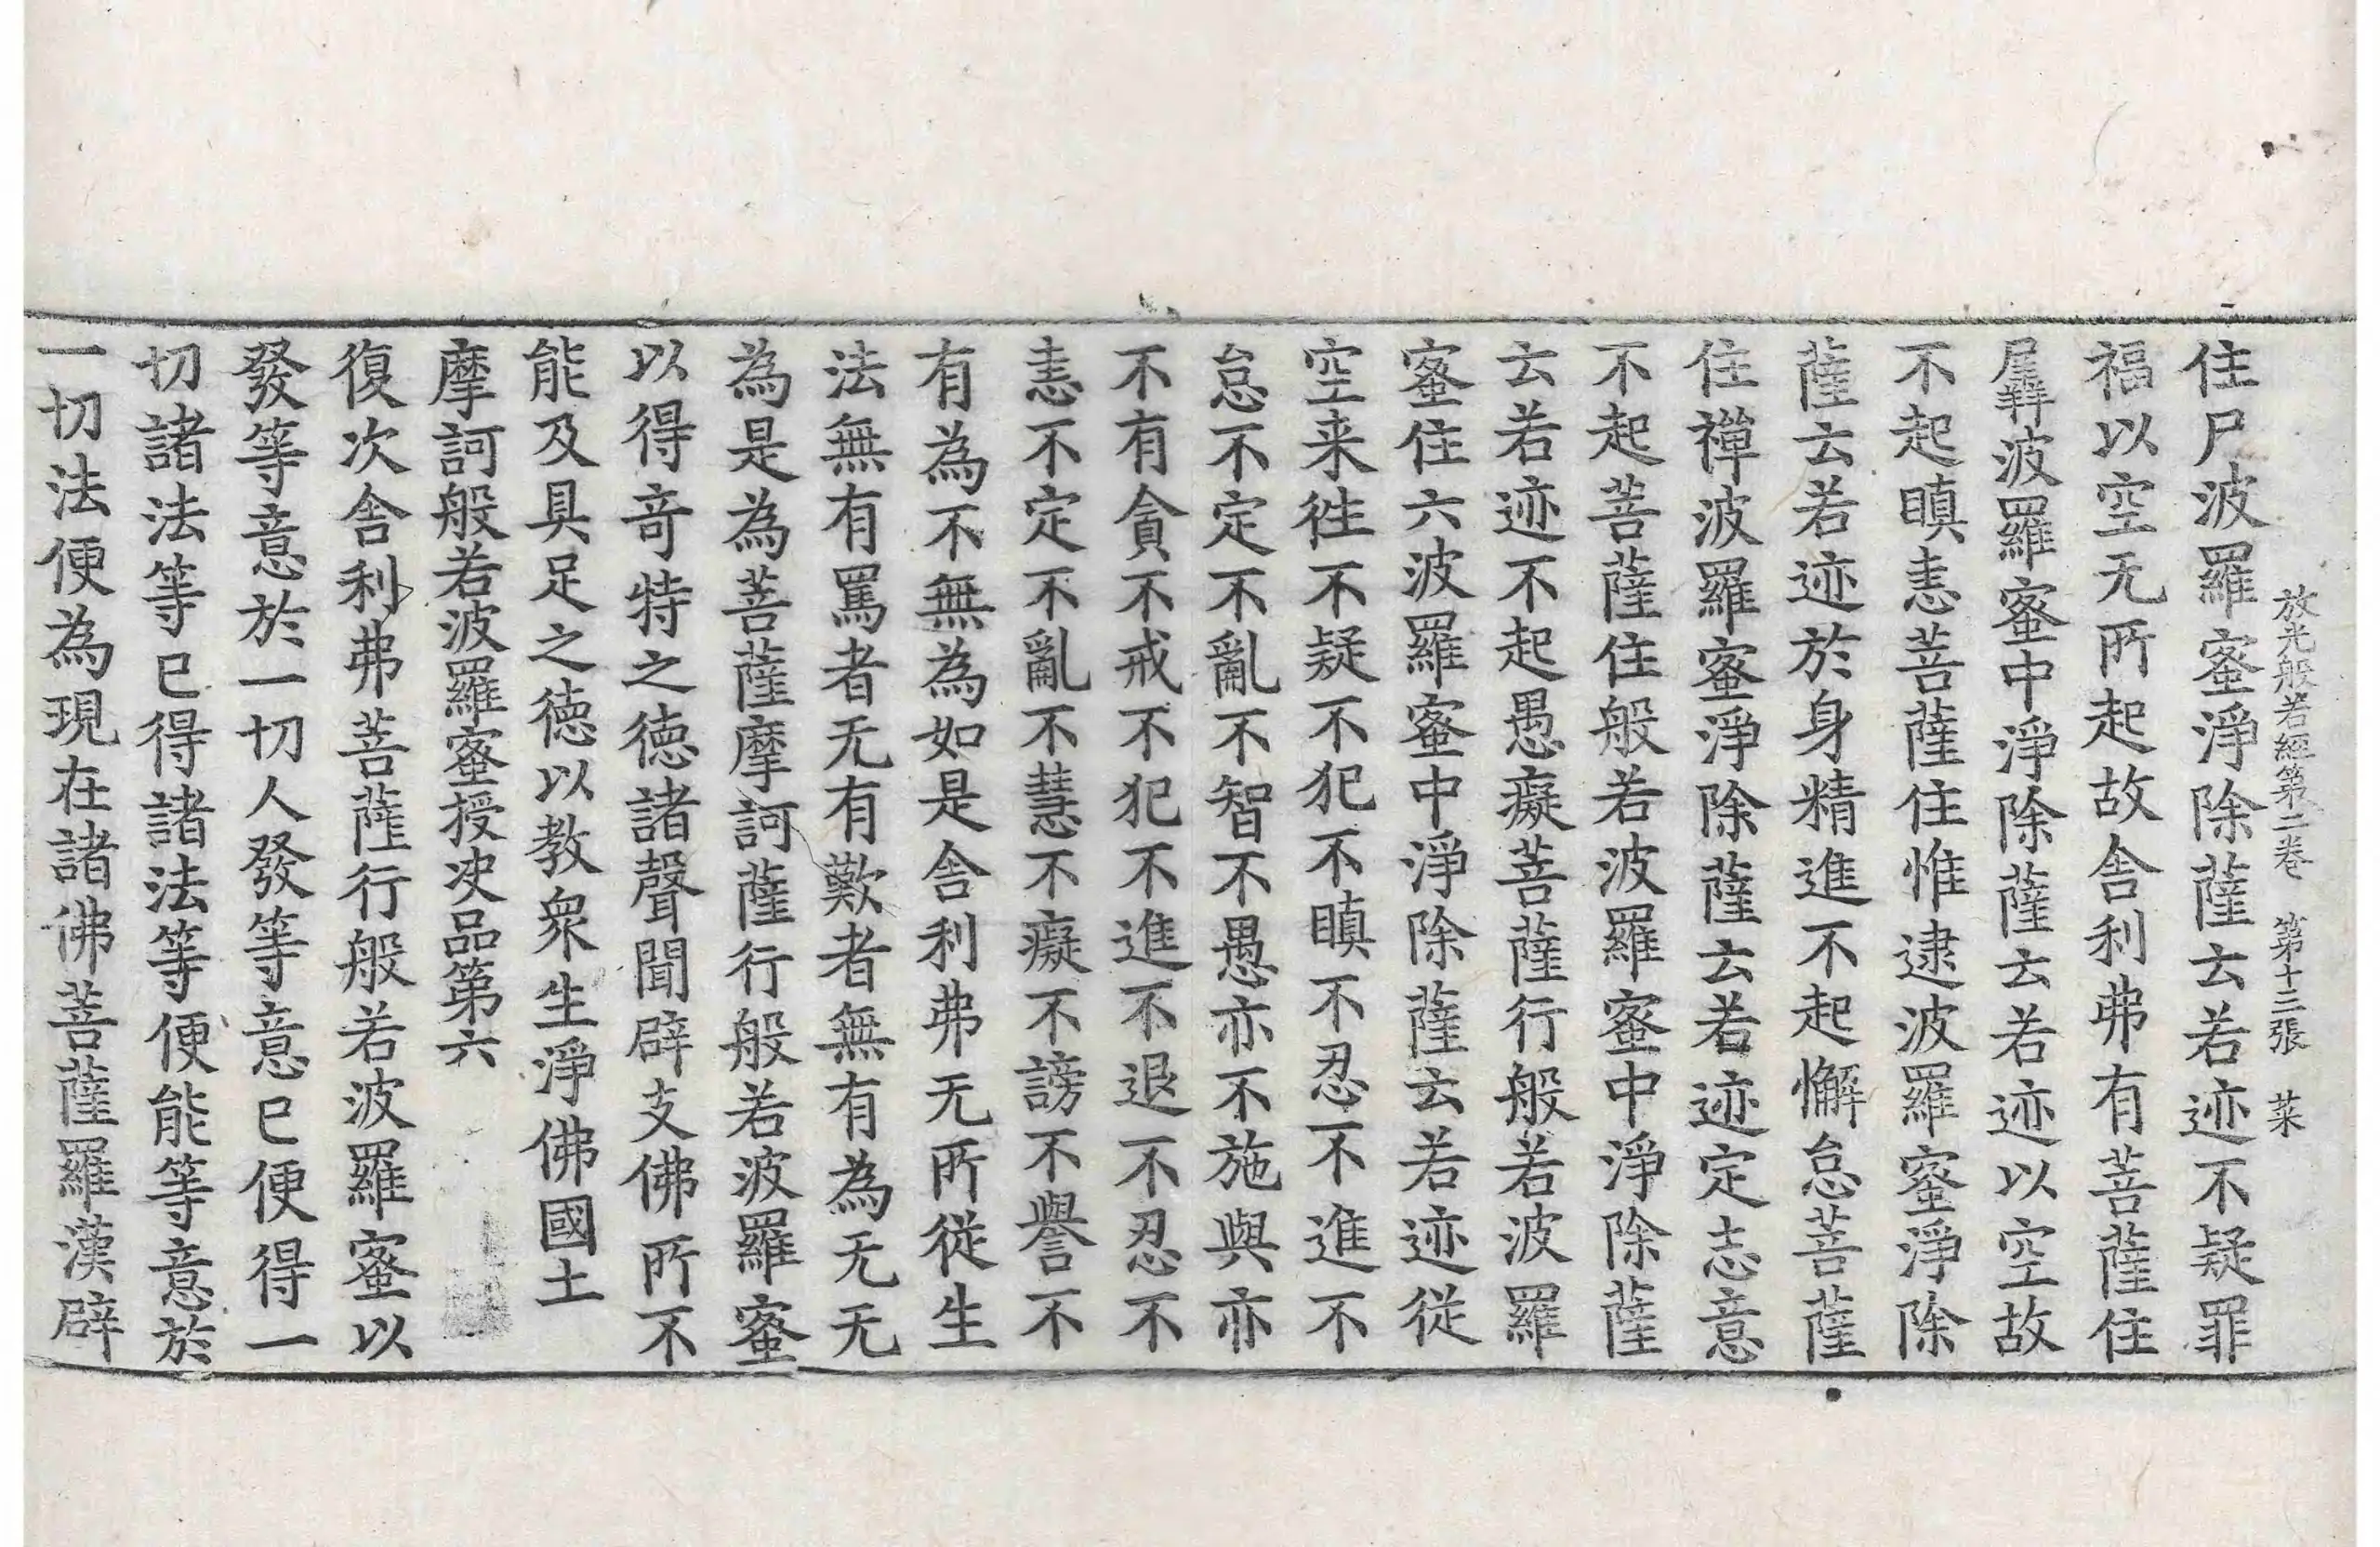 放光般若經第二卷　第十三張　菜
住尸波羅蜜淨除薩云若迹不疑罪
福以空无所起故舍利弗有菩薩住
羼波羅蜜中淨除薩云若迹以空故
不起瞋恚菩薩住惟逮波羅蜜淨除
薩云若迹於身精進不起懈怠菩薩
住禪波羅蜜淨除薩云若迹定志意
不起菩薩住般若波羅蜜中淨除薩
云若迹不起愚癡菩薩行般若波羅
蜜住六波羅蜜中淨除薩云若迹從
空来徃不疑不犯不瞋不忍不進不
怠不定不亂不智不愚亦不施與亦
不有貪不戒不犯不進不退不忍不
恚不定不亂不慧不癡不謗不譽不
有為不無為如是舍利弗无所從生
法無有罵者无有歎者無有為无无
為是為菩薩摩訶薩行般若波羅蜜
以得奇特之德諸聲聞辟支佛所不
能及具足之德以教衆生淨佛國土
摩訶般若波羅蜜授决品第六
復次舍利弗菩薩行般若波羅蜜以
發等意於一切人發等意已便得一
切諸法等已得諸法等便能等意於
一切法便為現在諸佛菩薩羅漢辟